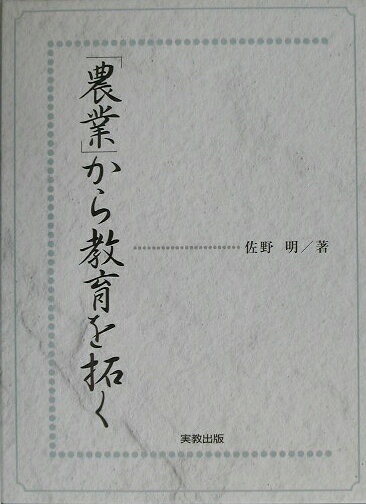 「農業」から教育を拓く
佐野 明/著
実教出版